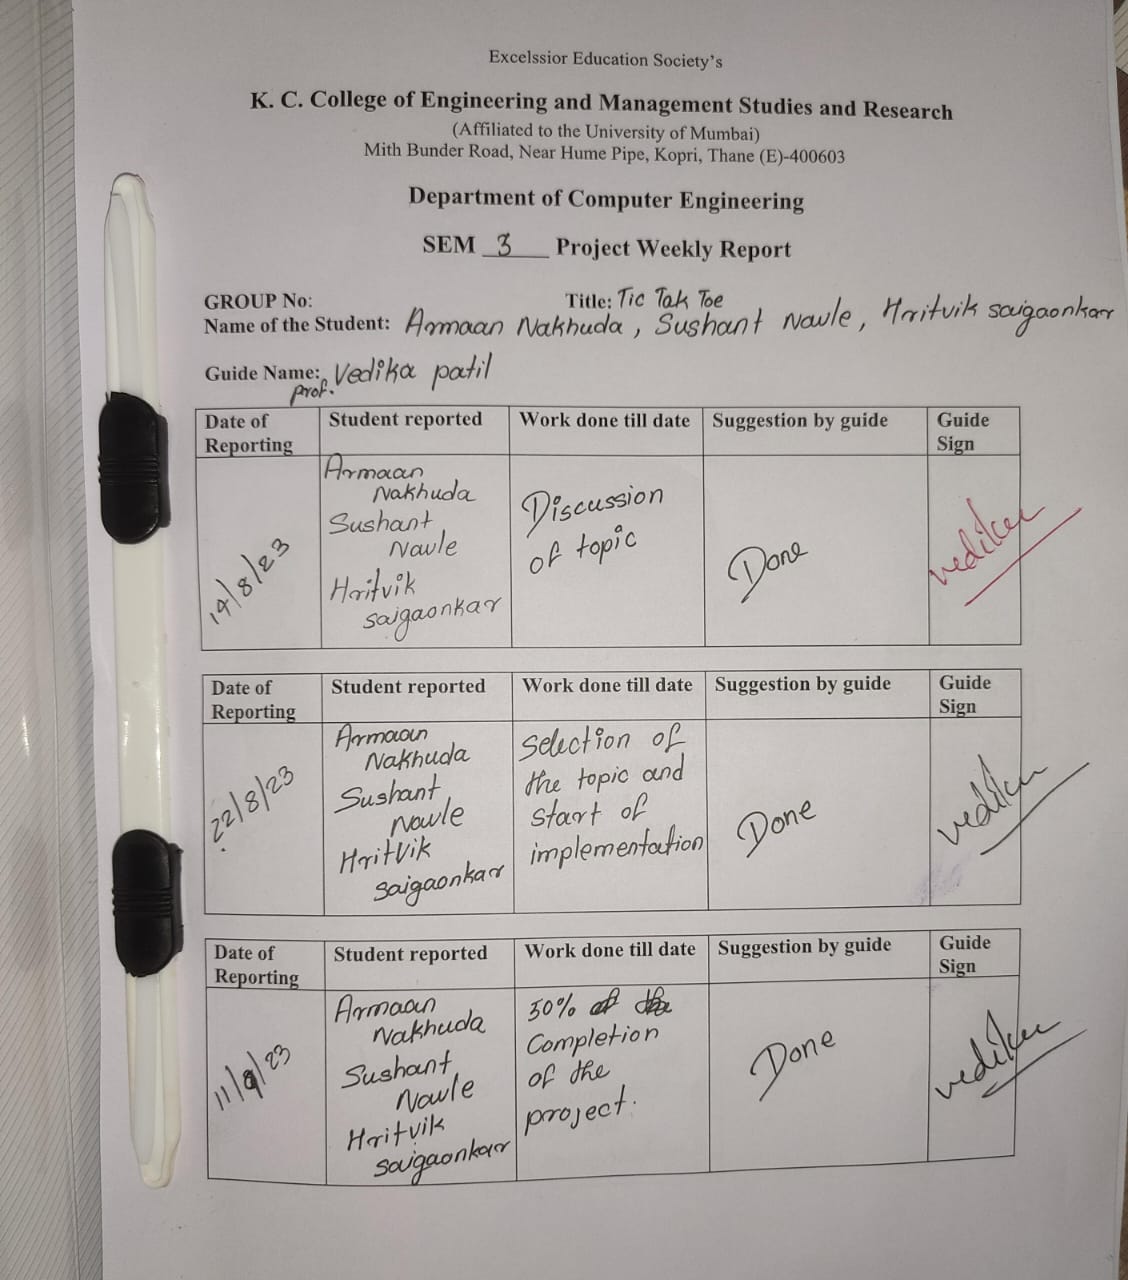 Excelssior Education Society's
K. C. College of Engineering and Management Studies and Research
(Affiliated to the University of Mumbai)
Mith Bunder Road, Near Hume Pipe, Kopri, Thane (E)-400603
Department of Computer Engineering
SEM 3 Project Weekly Report
GROUP No: Title: Tic Tak Toe
Name of the Student: Armaan Nakhuda, Sushant Navle, Hritvik saigaonkar
Guide Name: Vedika patil
prof.
Date of Reporting Student reported Work done till date Suggestion by guide Guide Sign
14/8/23
Armaan
Nakhuda
Sushant
Navle
Hritvik
saigaonkar
Discussion
of topic
Done
vedika
Date of Reporting Student reported Work done till date Suggestion by guide Guide Sign
22/8/23
Armaan
Nakhuda
Sushant
Navle
Hritvik
saigaonkar
Selection of
the topic and
start of
implementation
Done
vedika
Date of Reporting Student reported Work done till date Suggestion by guide Guide Sign
11/9/23
Armaan
Nakhuda
Sushant
Navle
Hritvik
saigaonkar
50%
Completion
of the
project.
Done
vedika